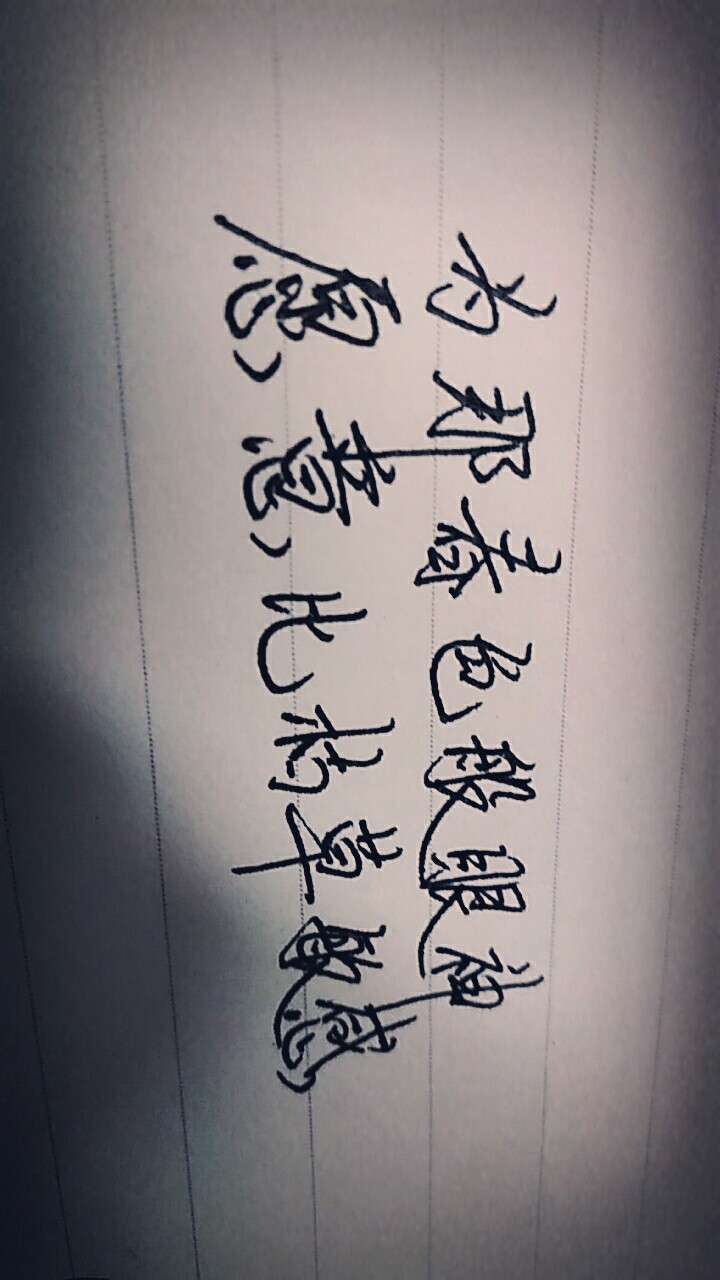 为那春色般眼神
愿意比枯草敏感